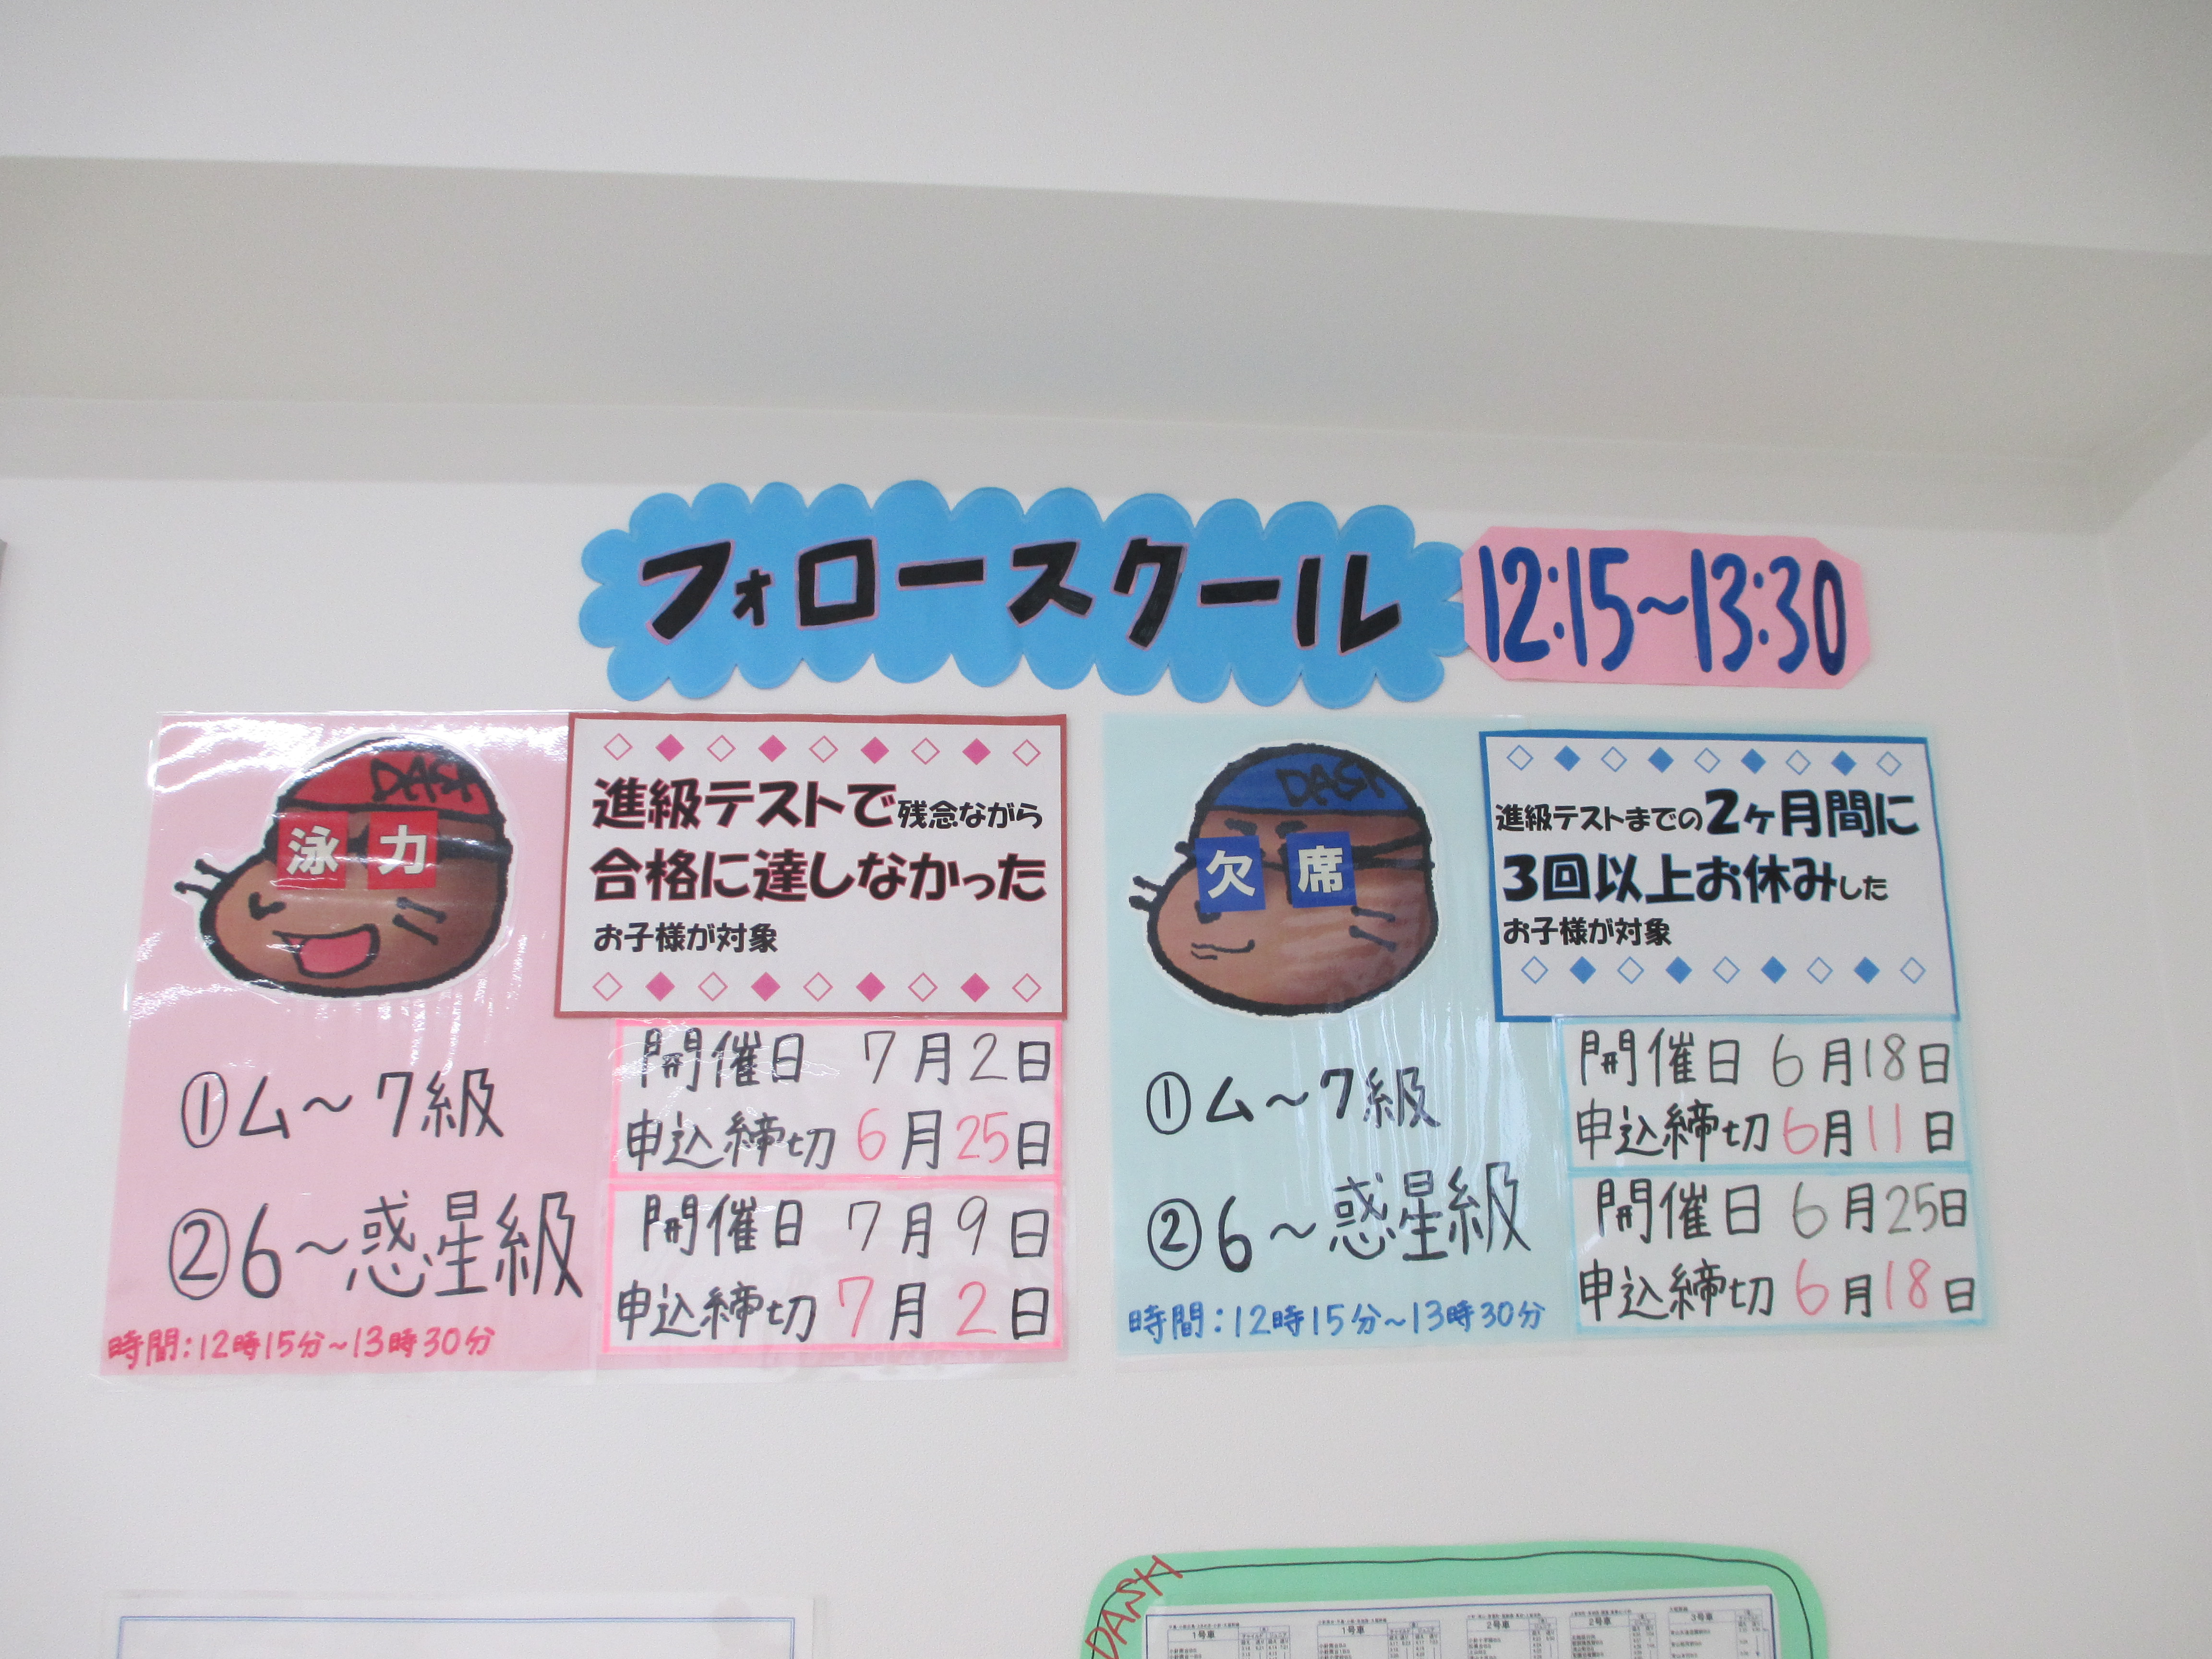 フォロースクール
12:15〜13:30
DASH
泳力
進級テストで残念ながら
合格に達しなかった
お子様が対象
①ム〜7級
開催日 7月2日
申込締切 6月25日
②6〜惑星級
開催日 7月9日
申込締切 7月2日
時間:12時15分〜13時30分
DASH
欠席
進級テストまでの2ヶ月間に
3回以上お休みした
お子様が対象
①ム〜7級
開催日 6月18日
申込締切 6月11日
②6〜惑星級
開催日 6月25日
申込締切 6月18日
時間:12時15分〜13時30分
DASH
1号車
1号車
2号車
2号車
3号車